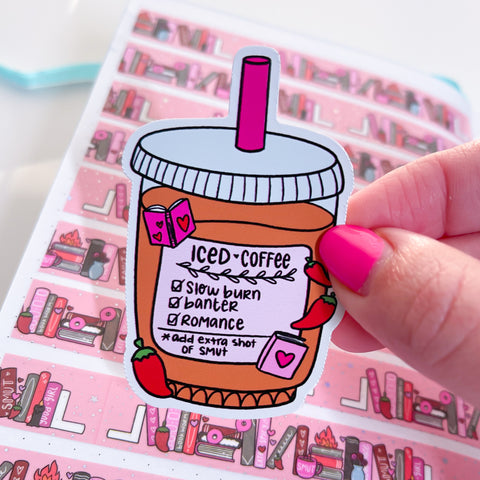 ICED ♥ COFFEE
☑ Slow burn
☑ banter
☑ ROMANCE
*add extra shot
OF SMUT
SMUT
SMUT